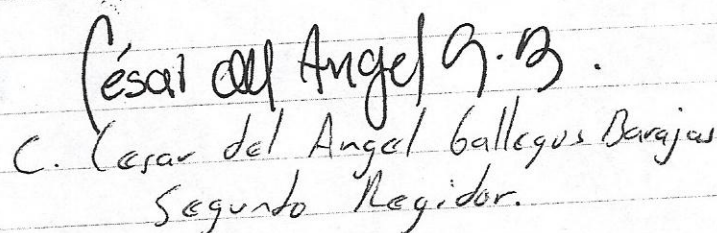 César del Angel G.B.
C. Cesar del Angel Gallegos Barajas
Segundo Regidor.